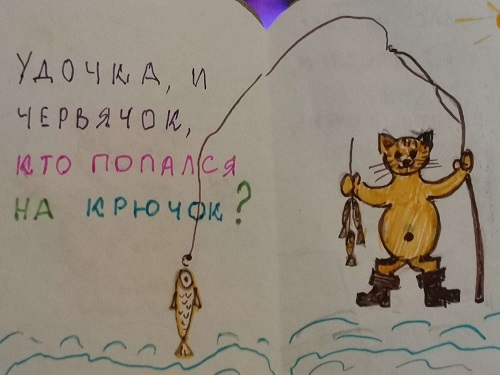 УДОЧКА, И
ЧЕРВЯЧОК,
КТО ПОПАЛСЯ
НА КРЮЧОК?